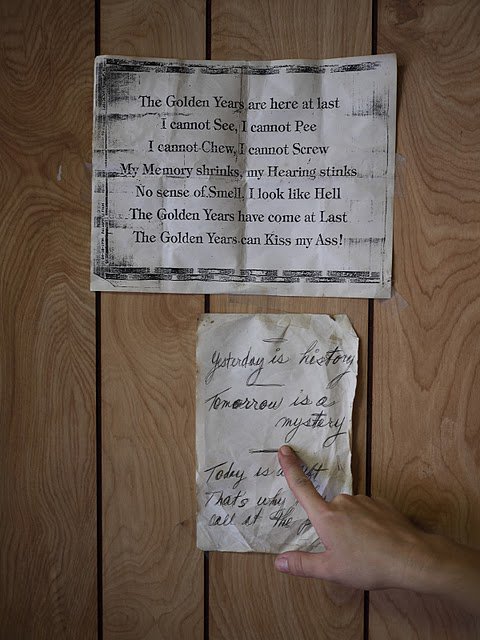 The Golden Years are here at last
I cannot See, I cannot Pee
I cannot Chew, I cannot Screw
My Memory shrinks, my Hearing stinks
No sense of Smell, I look like Hell
The Golden Years have come at Last
The Golden Years can Kiss my Ass!
Yesterday is history
Tomorrow is a
mystery
Today is a
That's why
call it the